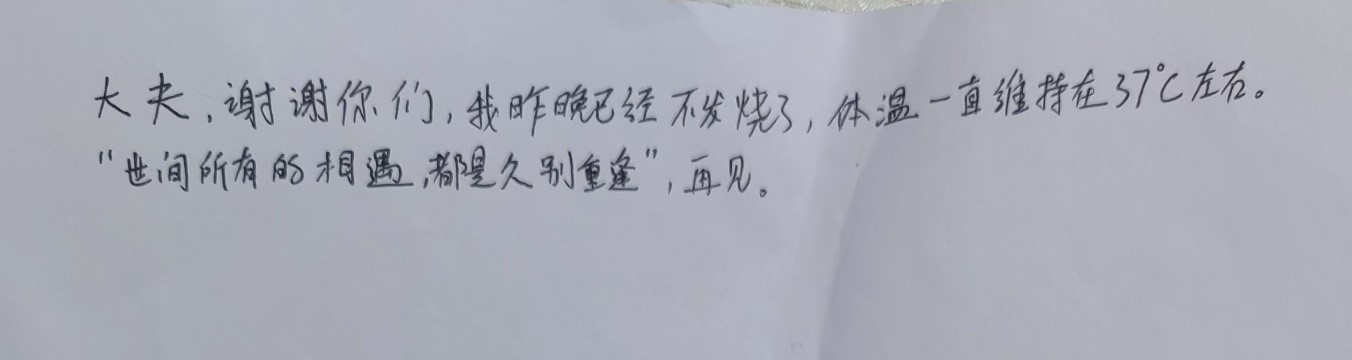 大夫，谢谢你们，我昨晚已经不发烧了，体温一直维持在37℃左右。
“世间所有的相遇，都是久别重逢”，再见。